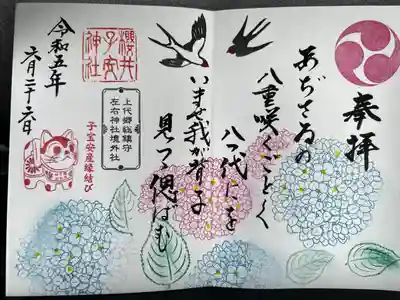 奉拝
あぢさゐの
八重咲くごとく
八つ代にを
いませ我が背子よ
見つつ偲ばも
櫻井
子安
神社
上代郷総鎮守
左右神社境外社
子宝安産縁結び
令和五年
六月二十六日